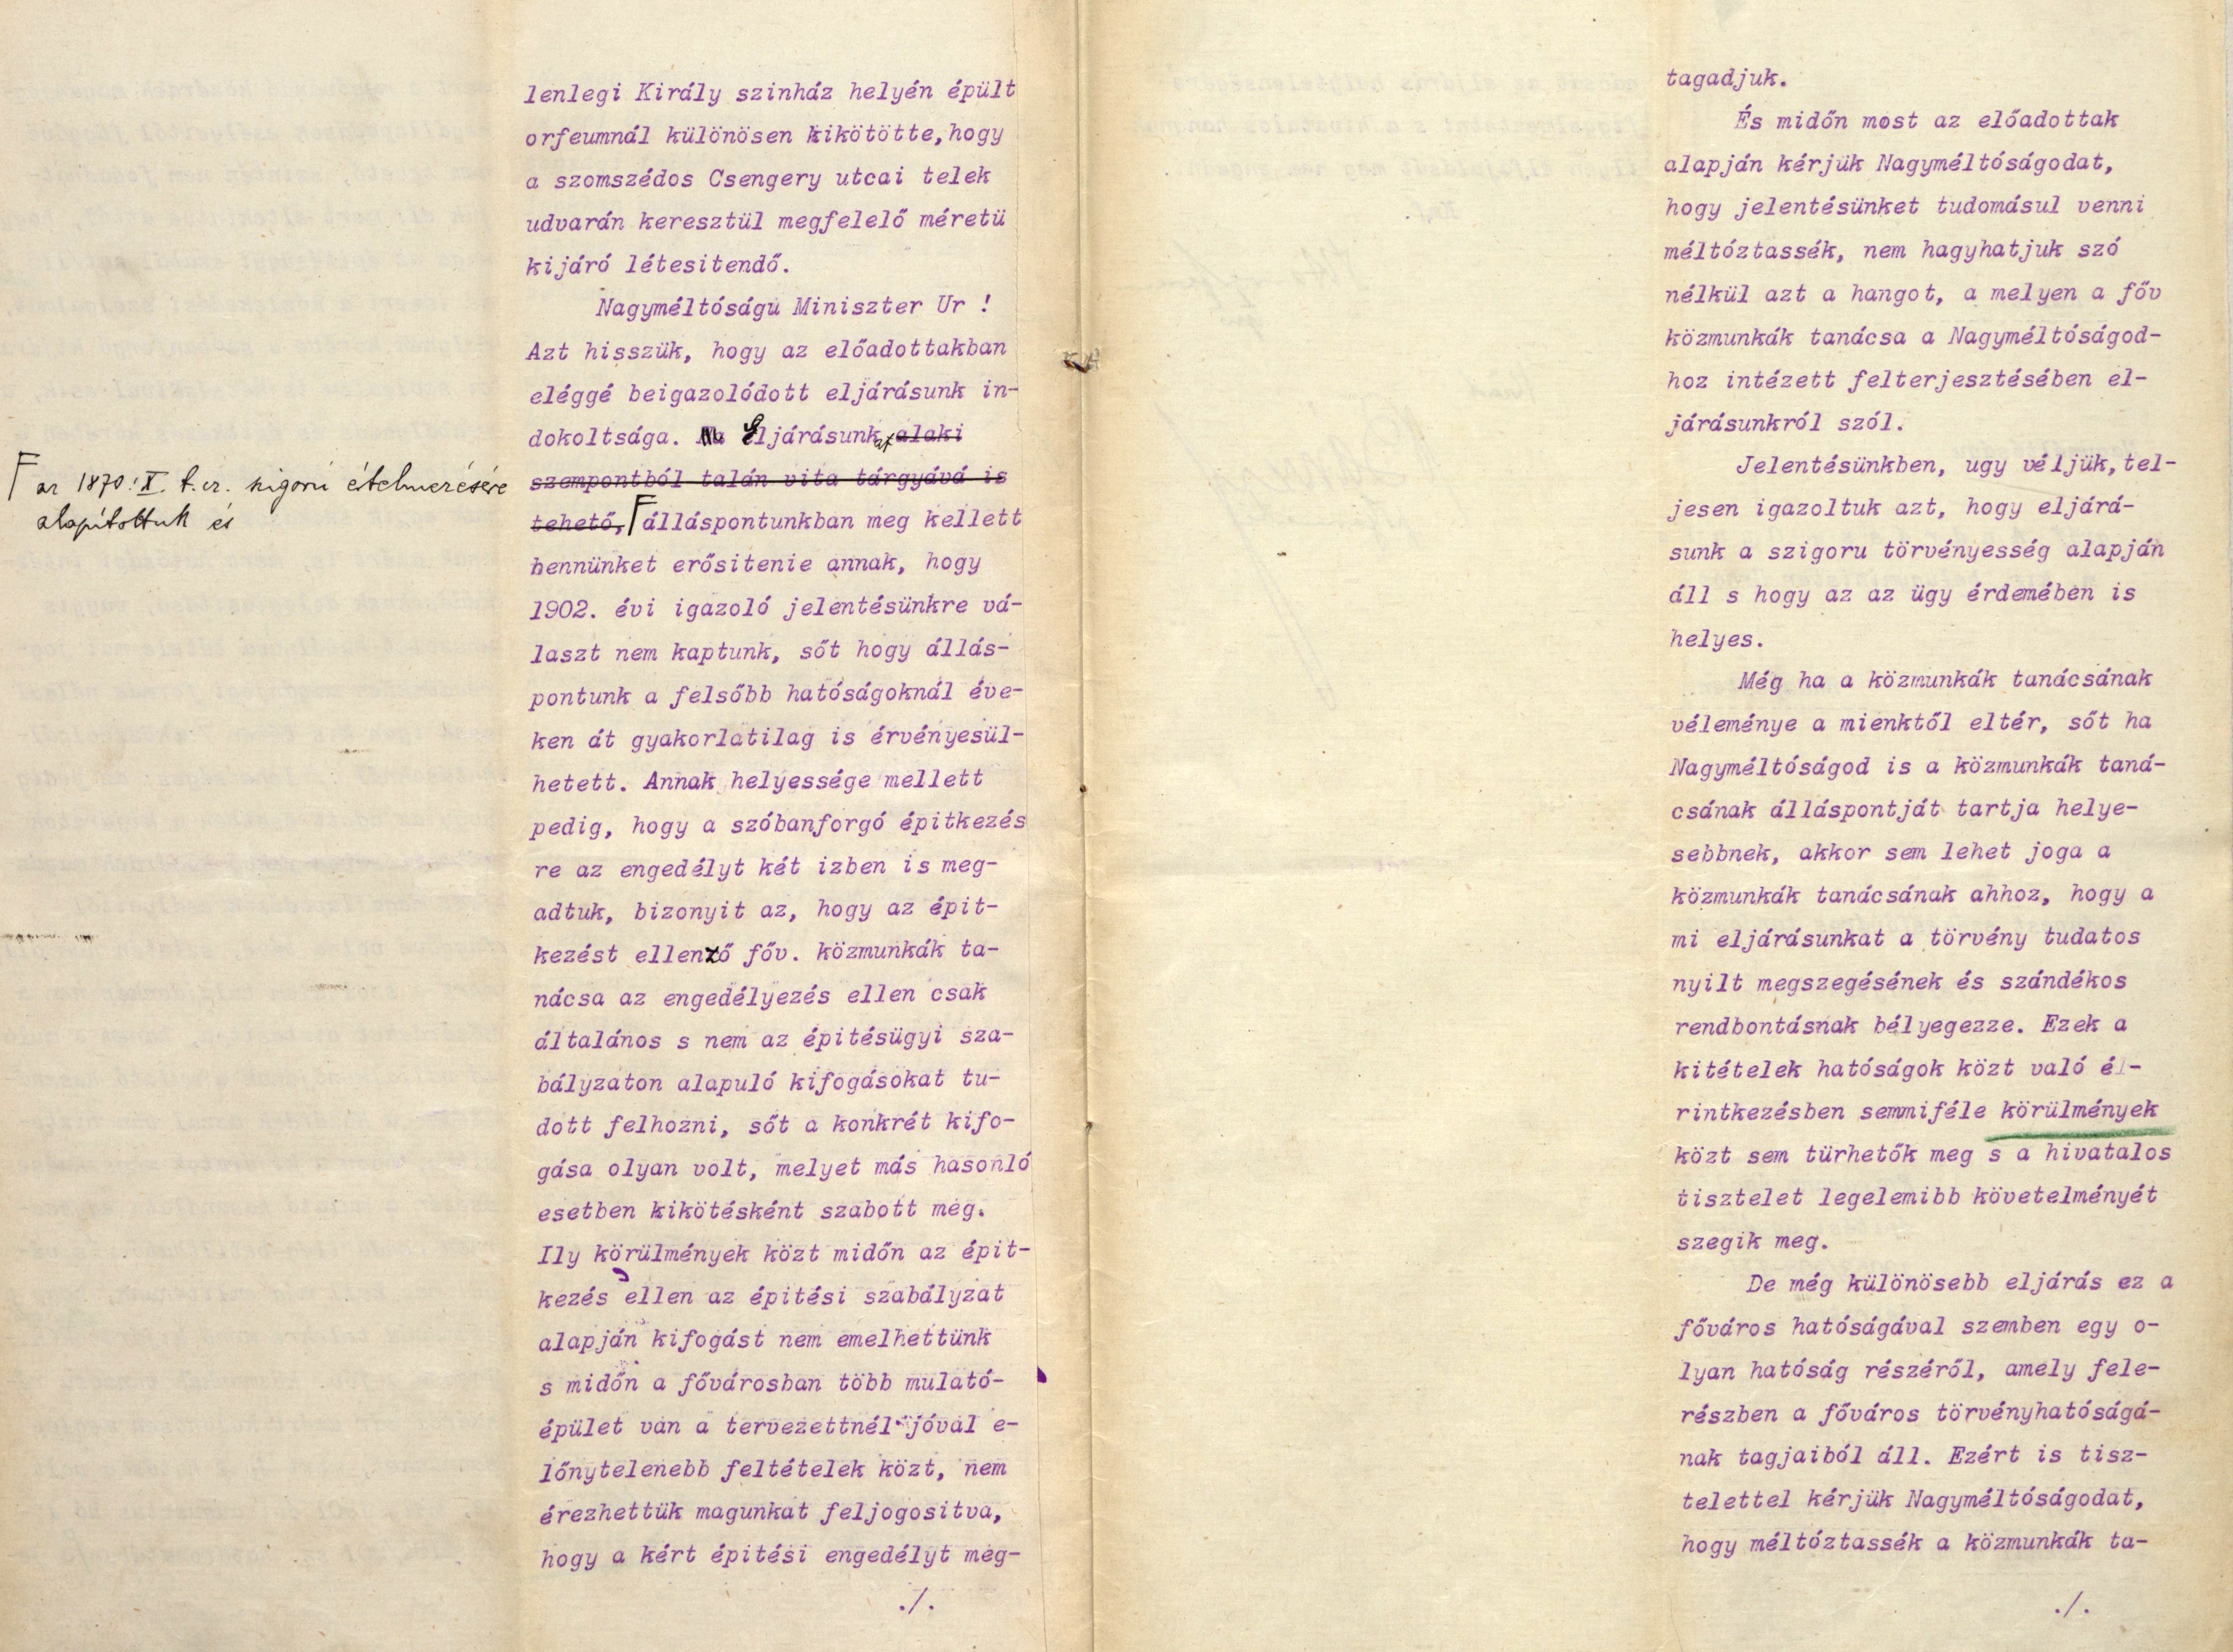 lenlegi Király szinház helyén épült
orfeumnál különösen kikötötte, hogy
a szomszédos Csengery utcai telek
udvarán keresztül megfelelő méretü
kijáró létesitendő.
Nagyméltóságu Miniszter Ur !
Azt hisszük, hogy az előadottakban
eléggé beigazolódott eljárásunk in-
dokoltsága. Eljárásunkat alaki
szempontból talán vita tárgyává is
tehető, álláspontunkban meg kellett
bennünket erősitenie annak, hogy
1902. évi igazoló jelentésünkre vá-
laszt nem kaptunk, sőt hogy állás-
pontunk a felsőbb hatóságoknál éve-
ken át gyakorlatilag is érvényesül-
hetett. Annak helyessége mellett
pedig, hogy a szóbanforgó épitkezés
re az engedélyt két izben is meg-
adtuk, bizonyit az, hogy az épit-
kezést ellenző főv. közmunkák ta-
nácsa az engedélyezés ellen csak
általános s nem az épitésügyi sza-
bályzaton alapuló kifogásokat tu-
dott felhozni, sőt a konkrét kifo-
gása olyan volt, melyet más hasonló
esetben kikötésként szabott meg.
Ily körülmények közt midőn az épit-
kezés ellen az épitési szabályzat
alapján kifogást nem emelhettünk
s midőn a fővárosban több mulató-
épület van a tervezettnél jóval e-
lőnytelenebb feltételek közt, nem
érezhettük magunkat feljogositva,
hogy a kért épitési engedélyt meg-
./.
az 1870:X. t.cz. szigorú értelmezésére
alapítottuk és
tagadjuk.
És midőn most az előadottak
alapján kérjük Nagyméltóságodat,
hogy jelentésünket tudomásul venni
méltóztassék, nem hagyhatjuk szó
nélkül azt a hangot, a melyen a főv
közmunkák tanácsa a Nagyméltóságod-
hoz intézett felterjesztésében el-
járásunkról szól.
Jelentésünkben, ugy véljük, tel-
jesen igazoltuk azt, hogy eljárá-
sunk a szigoru törvényesség alapján
áll s hogy az az ügy érdemében is
helyes.
Még ha a közmunkák tanácsának
véleménye a mienktől eltér, sőt ha
Nagyméltóságod is a közmunkák taná-
csának álláspontját tartja helye-
sebbnek, akkor sem lehet joga a
közmunkák tanácsának ahhoz, hogy a
mi eljárásunkat a törvény tudatos
nyilt megszegésének és szándékos
rendbontásnak bélyegezze. Ezek a
kitételek hatóságok közt való él-
rintkezésben semmiféle körülmények
közt sem türhetők meg s a hivatalos
tisztelet legelemibb követelményét
szegik meg.
De még különösebb eljárás ez a
főváros hatóságával szemben egy o-
lyan hatóság részéről, amely fele-
részben a főváros törvényhatóságá-
nak tagjaiból áll. Ezért is tisz-
telettel kérjük Nagyméltóságodat,
hogy méltóztassék a közmunkák ta-
./.